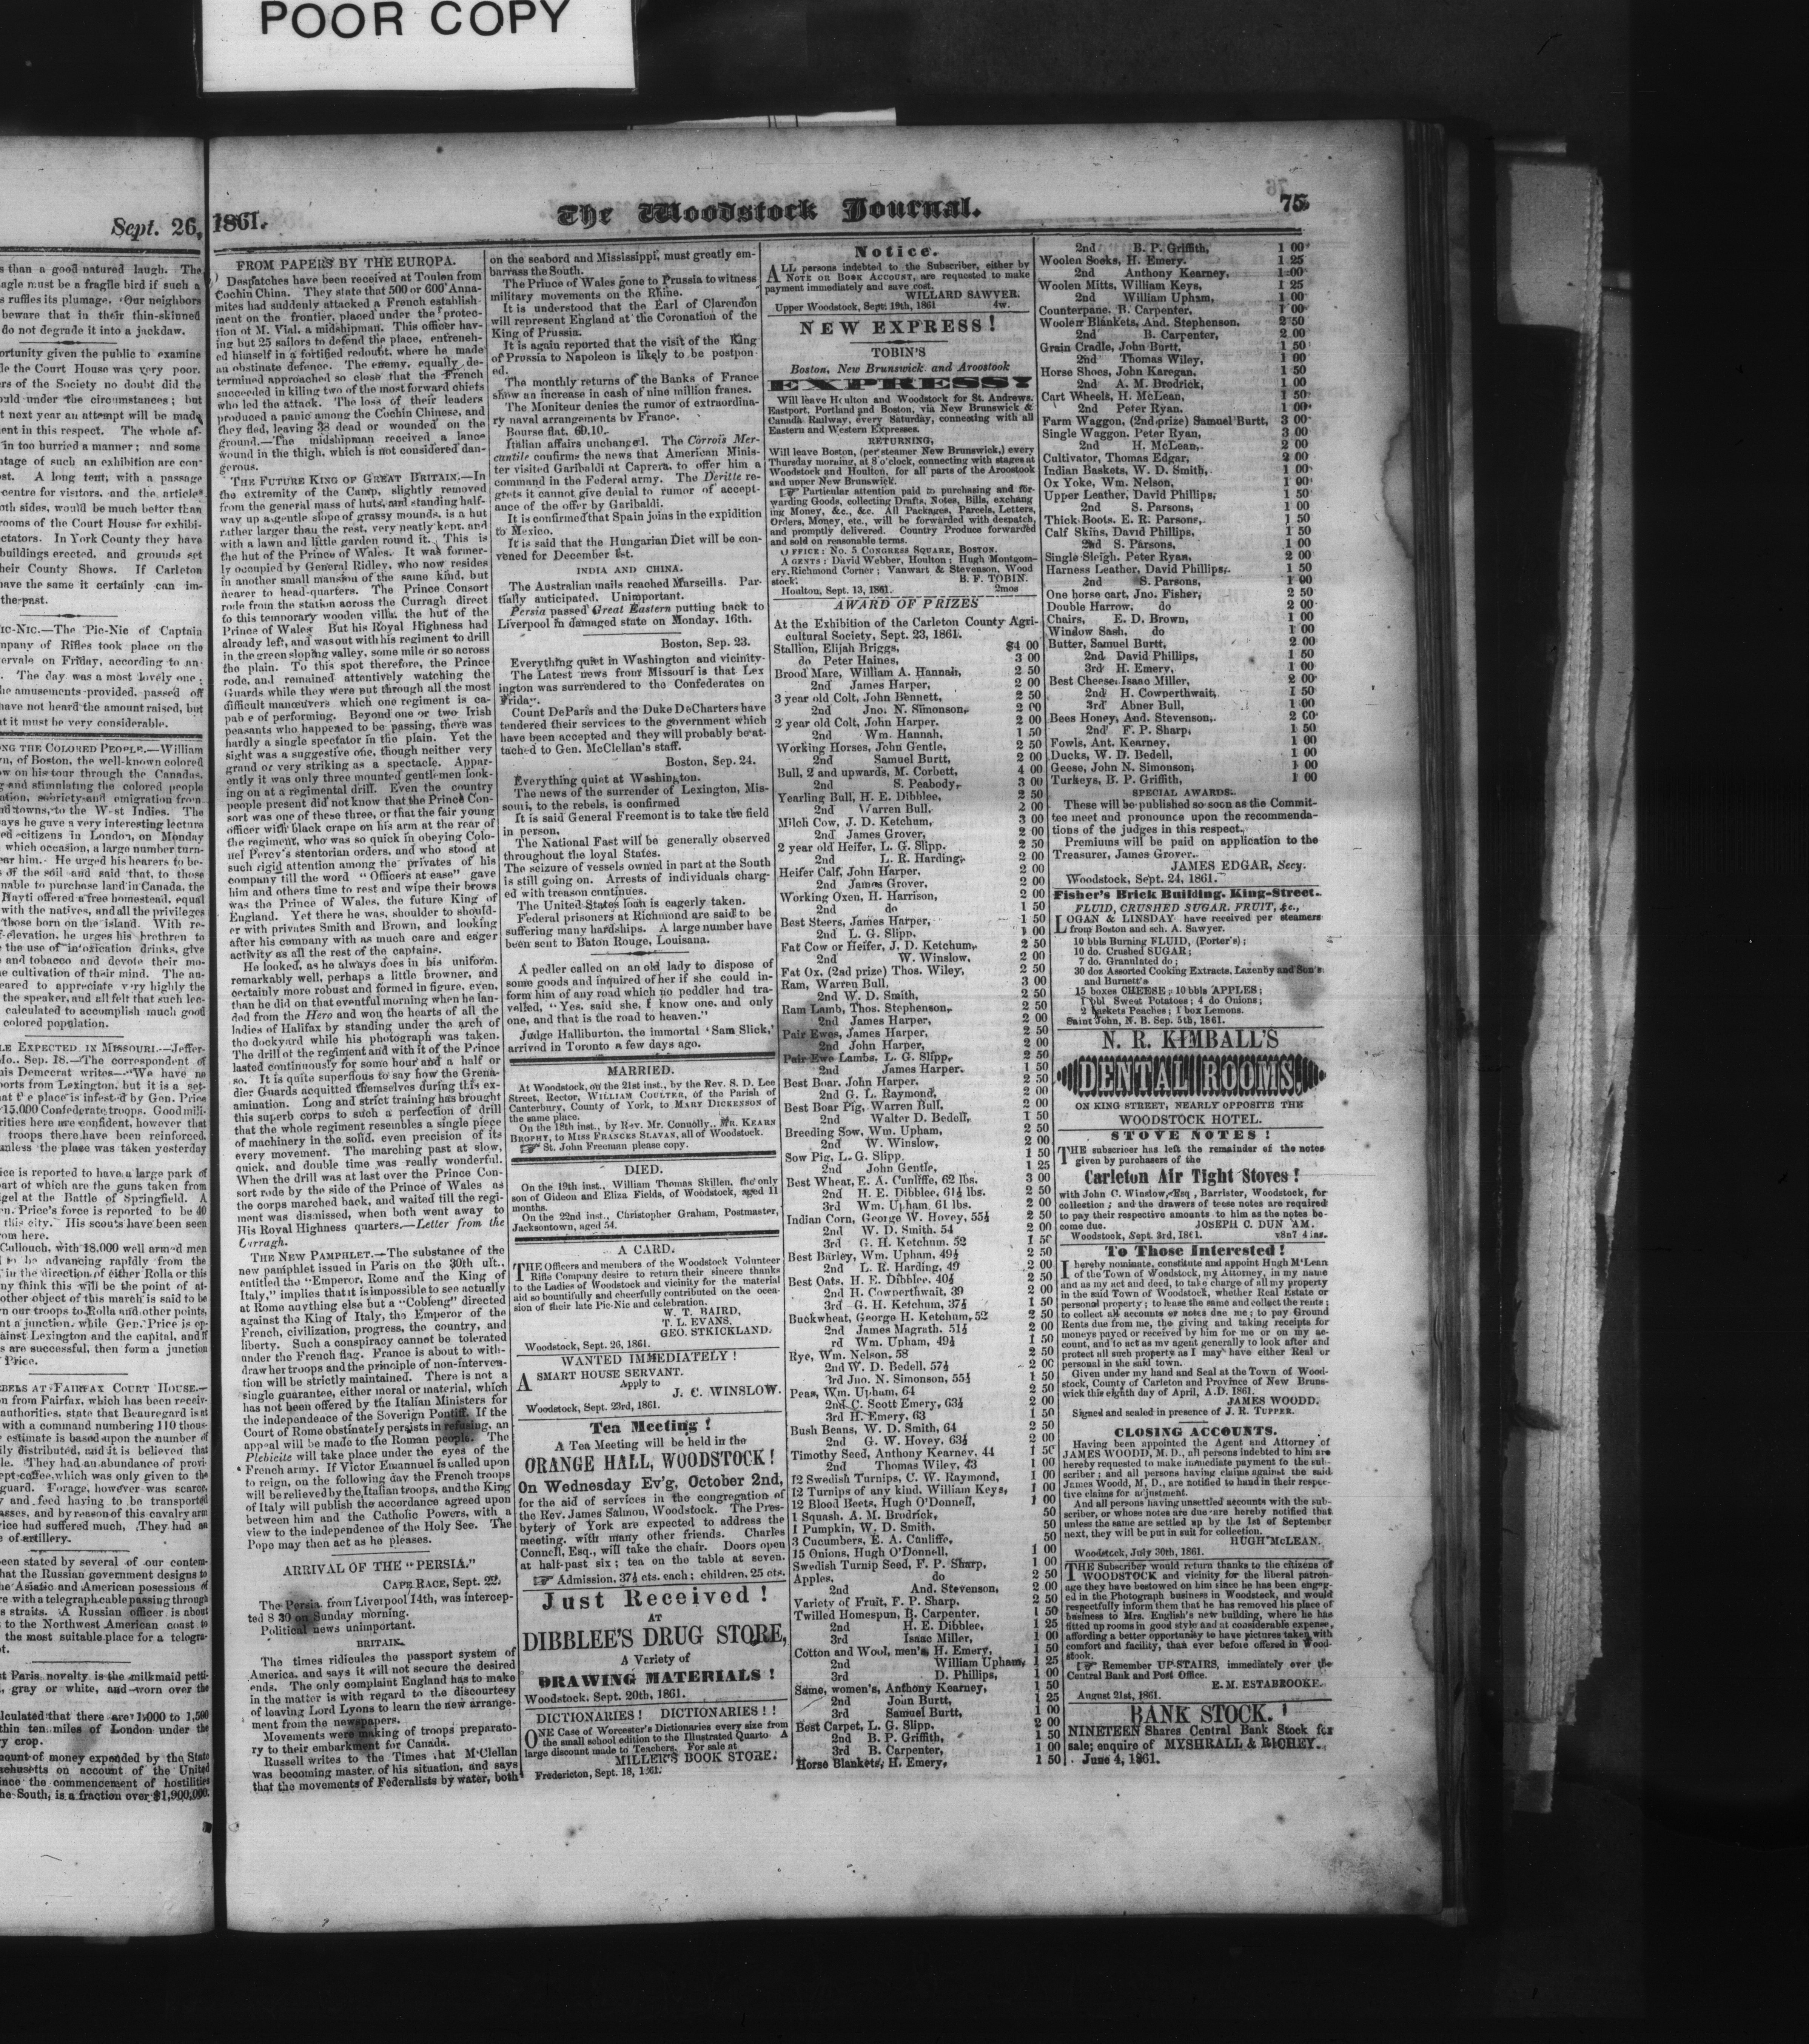 POOR COPY
Sept. 26, 1861.
The Woodstock Journal.
75
s than a good natured laugh. The
agle must be a fragile bird if such a
s ruffles its plumage. Our neighbors
beware that in their thin-skinned
do not degrade it into a jackdaw.
ortunity given the public to examine
le the Court House was very poor.
rs of the Society no doubt did the
ould under the circumstances; but
t next year an attempt will be made
ent in this respect. The whole af-
in too hurried a manner; and some
ntage of such an exhibition are con-
st. A long tent, with a passage
centre for visitors, and the articles
oth sides, would be much better than
rooms of the Court House for exhibi-
ctators. In York County they have
buildings erected, and grounds set
heir County Shows. If Carleton
have the same it certainly can im-
the past.
IC-NIC.—The Pic-Nic of Captain
mpany of Rifles took place on the
ervale on Friday, according to an-
. The day was a most lovely one;
he amusements provided, passed off
have not heard the amount raised, but
at it must be very considerable.
NG THE COLORED PEOPLE.—William
n, of Boston, the well-known colored
w on his tour through the Canadas,
g and stimulating the colored people
ation, sobriety and emigration from
nd towns, to the West Indies. The
ays he gave a very interesting lecture
ed citizens in London, on Monday
which occasion, a large number turn-
ear him. He urged his hearers to be-
of the soil and said that, to those
nable to purchase land in Canada, the
Hayti offered a free homestead, equal
with the natives, and all the privileges
those born on the island. With re-
f-elevation, he urges his brethren to
the use of intoxication drinks, give
and tobacco and devote their mo-
e cultivation of their mind. The au-
eared to appreciate very highly the
the speaker, and all felt that such lec-
calculated to accomplish much good
colored population.
LE EXPECTED IN MISSOURI.—Jeffer-
Mo., Sep. 18.—The correspondent of
his Democrat writes—"We have no
ports from Lexington, but it is a set-
at the place is infested by Gen. Price
15,000 Confederate troops. Good mili-
rities here are confident, however that
troops there have been reinforced,
unless the place was taken yesterday
ice is reported to have a large park of
art of which are the guns taken from
igel at the Battle of Springfield. A
n. Price's force is reported to be 40
this city. His scouts have been seen
rom here.
Cullouch, with 18,000 well armed men
to be advancing rapidly from the
in the direction of either Rolla or this
ny think this will be the point of at-
other object of this march is said to be
rn our troops to Rolla and other points,
nt a junction, while Gen. Price is op-
ainst Lexington and the capital, and if
s are successful, then form a junction
Price.
BELS AT FAIRFAX COURT HOUSE.—
n from Fairfax, which has been receiv-
authorities, state that Beauregard is at
with a command numbering 110 thous-
estimate is based upon the number of
ily distributed, and it is believed that
le. They had an abundance of provi-
ept coffee, which was only given to the
guard. Forage, however was scarce,
and feed having to be transported
asses, and by reason of this cavalry arm
ice had suffered much, They had an
e of artillery.
een stated by several of our contem-
hat the Russian government designs to
he Asiatic and American posessions of
re with a telegraph cable passing through
s straits. A Russian officer is about
to the Northwest American coast to
the most suitable place for a telegra-
ot.
st Paris novelty is the milkmaid petti-
, gray or white, and worn over the
alculated that there are 1,000 to 1,500
thin ten miles of London under the
y crop.
mount of money expended by the State
sachusetts on account of the United
ince the commencement of hostilities
he South, is a fraction over $1,900,000.
FROM PAPERS BY THE EUROPA.
Despatches have been received at Toulon from
Cochin China. They state that 500 or 600 Anna-
mites had suddenly attacked a French establish-
ment on the frontier, placed under the protec-
tion of M. Vial, a midshipman. This officer hav-
ing but 25 sailors to defend the place, entrench-
ed himself in a fortified redoubt, where he made
an obstinate defence. The enemy, equally de-
termined approached so close that the French
succeeded in killing two of the most forward chiefs
who led the attack. The loss of their leaders
produced a panic among the Cochin Chinese, and
they fled, leaving 38 dead or wounded on the
ground.—The midshipman received a lance
wound in the thigh, which is not considered dan-
gerous.
THE FUTURE KING OF GREAT BRITAIN.—In
the extremity of the Camp, slightly removed
from the general mass of huts, and standing half-
way up a gentle slope of grassy mounds, is a hut
rather larger than the rest, very neatly kept, and
with a lawn and little garden round it. This is
the hut of the Prince of Wales. It was former-
ly occupied by General Ridley, who now resides
in another small mansion of the same kind, but
nearer to head-quarters. The Prince Consort
rode from the station across the Curragh direct
to this temporary wooden villa, the hut of the
Prince of Wales But his Royal Highness had
already left, and was out with his regiment to drill
in the green sloping valley, some mile or so across
the plain. To this spot therefore, the Prince
rode, and remained attentively watching the
Guards while they were put through all the most
difficult manœuvers which one regiment is ca-
pab e of performing. Beyond one or two Irish
peasants who happened to be passing, there was
hardly a single spectator in the plain. Yet the
sight was a suggestive one, though neither very
grand or very striking as a spectacle. Appar-
ently it was only three mounted gentlemen look-
ing on at a regimental drill. Even the country
people present did not know that the Prince Con-
sort was one of these three, or that the fair young
officer with black crape on his arm at the rear of
the regiment, who was so quick in obeying Colo-
nel Percy's stentorian orders, and who stood at
such rigid attention among the privates of his
company till the word "Officers at ease" gave
him and others time to rest and wipe their brows
was the Prince of Wales, the future King of
England. Yet there he was, shoulder to should-
er with privates Smith and Brown, and looking
after his company with as much care and eager
activity as all the rest of the captains.
He looked, as he always does in his uniform,
remarkably well, perhaps a little browner, and
certainly more robust and formed in figure, even,
than he did on that eventful morning when he lan-
ded from the Hero and won the hearts of all the
ladies of Halifax by standing under the arch of
the dockyard while his photograph was taken.
The drill of the regiment and with it of the Prince
lasted continuously for some hour and a half or
so. It is quite superflous to say how the Grena-
dier Guards acquitted themselves during this ex-
amination. Long and strict training has brought
this superb corps to such a perfection of drill
that the whole regiment resembles a single piece
of machinery in the solid, even precision of its
every movement. The marching past at slow,
quick, and double time was really wonderful.
When the drill was at last over the Prince Con-
sort rode by the side of the Prince of Wales as
the corps marched back, and waited till the regi-
ment was dismissed, when both went away to
His Royal Highness quarters.—Letter from the
Curragh.
THE NEW PAMPHLET.—The substance of the
new pamphlet issued in Paris on the 30th ult.,
entitled the "Emperor, Rome and the King of
Italy," implies that it is impossible to see actually
at Rome anything else but a "Cobleng" directed
against the King of Italy, the Emperor of the
French, civilization, progress, the country, and
liberty. Such a conspiracy cannot be tolerated
under the French flag. France is about to with-
draw her troops and the principle of non-interven-
tion will be strictly maintained. There is not a
single guarantee, either moral or material, which
has not been offered by the Italian Ministers for
the independence of the Soverign Pontiff. If the
Court of Rome obstinately persists in refusing, an
appeal will be made to the Roman people. The
Plebicite will take place under the eyes of the
French army. If Victor Emannuel is called upon
to reign, on the following day the French troops
will be relieved by the Italian troops, and the King
of Italy will publish the accordance agreed upon
between him and the Catholic Powers, with a
view to the independence of the Holy See. The
Pope may then act as he pleases.
ARRIVAL OF THE "PERSIA."
CAPE RACE, Sept. 22.
The Persia, from Liverpool 14th, was intercep-
ted 8 30 on Sunday morning.
Political news unimportant.
BRITAIN.
The times ridicules the passport system of
America, and says it will not secure the desired
ends. The only complaint England has to make
in the matter is with regard to the discourtesy
of leaving Lord Lyons to learn the new arrange-
ment from the newspapers.
Movements were making of troops preparato-
ry to their embarkment for Canada.
Russell writes to the Times that M'Clellan
was becoming master of his situation, and says
that the movements of Federalists by water, both
on the seabord and Mississippi, must greatly em-
barrass the South.
The Prince of Wales gone to Prussia to witness
military movements on the Rhine.
It is understood that the Earl of Clarendon
will represent England at the Coronation of the
King of Prussia.
It is again reported that the visit of the King
of Prussia to Napoleon is likely to be postpon-
ed.
The monthly returns of the Banks of France
show an increase in cash of nine million francs.
The Moniteur denies the rumor of extraordina-
ry naval arrangements by France.
Bourse flat, 69.10.
Italian affairs unchanged. The Corrois Mer-
cantile confirms the news that American Minis-
ter visited Garibaldi at Caprera, to offer him a
command in the Federal army. The Deritte re-
grets it cannot give denial to rumor of accept-
ance of the offer by Garibaldi.
It is confirmed that Spain joins in the expidition
to Mexico.
It is said that the Hungarian Diet will be con-
vened for December 1st.
INDIA AND CHINA.
The Australian mails reached Marseills. Par-
tially anticipated. Unimportant.
Persia passed Great Eastern putting back to
Liverpool in damaged state on Monday, 16th.
Boston, Sep. 23.
Everything quiet in Washington and vicinity-
The Latest news from Missouri is that Lex
ington was surrendered to the Confederates on
Friday.
Count DeParis and the Duke DeCharters have
tendered their services to the government which
have been accepted and they will probably be at-
tached to Gen. McClellan's staff.
Boston, Sep. 24.
Everything quiet at Washington.
The news of the surrender of Lexington, Mis-
souri, to the rebels, is confirmed
It is said General Freemont is to take the field
in person.
The National Fast will be generally observed
throughout the loyal States.
The seizure of vessels owned in part at the South
is still going on. Arrests of individuals charg-
ed with treason continues.
The United States loan is eagerly taken.
Federal prisoners at Richmond are said to be
suffering many hardships. A large number have
been sent to Baton Rouge, Louisana.
A pedler called on an old lady to dispose of
some goods and inquired of her if she could in-
form him of any road which no peddler had tra-
velled, "Yes, said she, I know one, and only
one, and that is the road to heaven."
Judge Halliburton, the immortal 'Sam Slick,'
arrived in Toronto a few days ago.
MARRIED.
At Woodstock, on the 21st inst., by the Rev. S. D. Lee
Street, Rector, WILLIAM COULTER, of the Parish of
Canterbury, County of York, to MARY DICKENSON of
the same place.
On the 18th inst., by Rev. Mr. Connolly, MR. KEARN
BROPHY, to MISS FRANCES SLAVAN, all of Woodstock.
☞ St. John Freeman please copy.
DIED.
On the 19th inst., William Thomas Skillen, the only
son of Gideon and Eliza Fields, of Woodstock, aged 11
months.
On the 22nd inst., Christopher Graham, Postmaster,
Jacksontown, aged 54.
A CARD.
THE Officers and members of the Woodstock Volunteer
Rifle Company desire to return their sincere thanks
to the Ladies of Woodstock and vicinity for the material
aid so bountifully and cheerfully contributed on the occa-
sion of their late Pic-Nic and celebration.
W. T. BAIRD,
T. L. EVANS.
GEO. STRICKLAND.
Woodstock, Sept. 26, 1861.
WANTED IMMEDIATELY!
A SMART HOUSE SERVANT.
Apply to
J. C. WINSLOW.
Woodstock, Sept. 23rd, 1861.
Tea Meeting!
A Tea Meeting will be held in the
ORANGE HALL, WOODSTOCK!
On Wednesday Ev'g, October 2nd,
for the aid of services in the congregation of
the Rev. James Salmon, Woodstock. The Pres-
bytery of York are expected to address the
meeting, with many other friends. Charles
Connell, Esq., will take the chair. Doors open
at half-past six; tea on the table at seven.
☞ Admission, 37½ cts. each; children, 25 cts.
Just Received!
AT
DIBBLEE'S DRUG STORE,
A Variety of
DRAWING MATERIALS!
Woodstock, Sept. 20th, 1861.
DICTIONARIES! DICTIONARIES!!
ONE Case of Worcester's Dictionaries every size from
the small school edition to the Illustrated Quarto A
large discount made to Teachers. For sale at
MILLER'S BOOK STORE.
Fredericton, Sept. 18, 1861.
Notice.
ALL persons indebted to the Subscriber, either by
NOTE OR BOOK ACCOUNT, are requested to make
payment immediately and save cost.
WILLARD SAWYER.
Upper Woodstock, Sept. 19th, 1861 4w.
NEW EXPRESS!
TOBIN'S
Boston, New Brunswick and Aroostook
EXPRESS!
Will leave Houlton and Woodstock for St. Andrews,
Eastport, Portland and Boston, via New Brunswick &
Canada Railway, every Saturday, connecting with all
Eastern and Western Expresses.
RETURNING,
Will leave Boston, (per steamer New Brunswick,) every
Thursday morning, at 8 o'clock, connecting with stages at
Woodstock and Houlton, for all parts of the Aroostook
and upper New Brunswick.
☞ Particular attention paid to purchasing and for-
warding Goods, collecting Drafts, Notes, Bills, exchang
ing Money, &c., &c. All Packages, Parcels, Letters,
Orders, Money, etc., will be forwarded with despatch,
and promptly delivered. Country Produce forwarded
and sold on reasonable terms.
OFFICE: No. 5 CONGRESS SQUARE, BOSTON.
AGENTS: David Webber, Houlton; Hugh Montgom-
ery, Richmond Corner; Vanwart & Stevenson, Wood
stock. B. F. TOBIN.
Houlton, Sept. 13, 1861. 2mos
AWARD OF PRIZES
At the Exhibition of the Carleton County Agri-
cultural Society, Sept. 23, 1861.
Stallion, Elijah Briggs, $4 00
do Peter Haines, 3 00
Brood Mare, William A. Hannah, 2 50
2nd James Harper, 2 00
3 year old Colt, John Bennett, 2 50
2nd Jno. N. Simonson, 2 00
2 year old Colt, John Harper. 2 00
2nd Wm. Hannah, 1 50
Working Horses, John Gentle, 2 50
2nd Samuel Burtt, 2 00
Bull, 2 and upwards, M. Corbett, 4 00
2nd S. Peabody, 3 00
Yearling Bull, H. E. Dibblee, 2 50
2nd Warren Bull, 2 00
Milch Cow, J. D. Ketchum, 3 00
2nd James Grover, 2 00
2 year old Heifer, L. G. Slipp. 2 50
2nd L. R. Harding, 2 00
Heifer Calf, John Harper, 2 00
2nd James Grover, 2 00
Working Oxen, H. Harrison, 2 00
2nd do 1 50
Best Steers, James Harper, 1 50
2nd L. G. Slipp, 1 00
Fat Cow or Heifer, J. D. Ketchum, 2 50
2nd W. Winslow, 2 00
Fat Ox, (2nd prize) Thos. Wiley, 2 50
Ram, Warren Bull, 3 00
2nd W. D. Smith, 2 50
Ram Lamb, Thos. Stephenson, 2 50
2nd James Harper, 2 00
Pair Ewes, James Harper, 2 50
2nd John Harper, 2 00
Pair Ewe Lambs, L. G. Slipp, 2 50
2nd James Harper. 1 50
Best Boar, John Harper. 2 50
2nd G. L. Raymond, 2 00
Best Boar Pig, Warren Bull, 2 00
2nd Walter D. Bedell, 1 50
Breeding Sow, Wm. Upham, 2 50
2nd W. Winslow, 2 00
Sow Pig, L. G. Slipp. 1 50
2nd John Gentle, 1 25
Best Wheat, E. A. Cunliffe, 62 lbs. 3 00
2nd H. E. Dibblee, 61½ lbs. 2 50
3rd Wm. Upham, 61 lbs. 2 00
Indian Corn, George W. Hovey, 55½ 2 50
2nd W. D. Smith, 54 2 00
3rd G. H. Ketchum. 52 1 50
Best Barley, Wm. Upham, 49½ 2 50
2nd L. R. Harding, 49 2 00
Best Oats, H. E. Dibblee, 40½ 2 50
2nd H. Cowperthwait, 39 2 00
3rd G. H. Ketchum, 37½ 1 50
Buckwheat, George H. Ketchum, 52 2 50
2nd James Magrath. 51½ 2 00
rd Wm. Upham, 49½ 1 50
Rye, Wm. Nelson, 58 2 50
2nd W. D. Bedell, 57½ 2 00
3rd Jno. N. Simonson, 55½ 1 50
Peas, Wm. Upham, 64 2 50
2nd C. Scott Emery, 63½ 2 00
3rd H. Emery, 63 1 50
Bush Beans, W. D. Smith, 64 2 50
2nd G. W. Hovey, 63½ 2 00
Timothy Seed, Anthony Kearney, 44 1 50
2nd Thomas Wiley, 43 1 00
12 Swedish Turnips, C. W. Raymond, 1 00
12 Turnips of any kind. William Keys, 1 00
12 Blood Beets, Hugh O'Donnell, 1 00
1 Squash, A. M. Brodrick, 50
1 Pumpkin, W. D. Smith, 50
3 Cucumbers, E. A. Cunliffe, 50
15 Onions, Hugh O'Donnell, 1 00
Swedish Turnip Seed, F. P. Sharp, 1 00
Apples, do 2 50
2nd And. Stevenson, 2 00
Variety of Fruit, F. P. Sharp, 2 50
Twilled Homespun, B. Carpenter, 1 50
2nd H. E. Dibblee, 1 25
3rd Isaac Miller, 1 00
Cotton and Wool, men's, H. Emery, 1 50
2nd William Upham, 1 25
3rd D. Phillips, 1 00
Same, women's, Anthony Kearney, 1 50
2nd John Burtt, 1 25
3rd Samuel Burtt, 1 00
Best Carpet, L. G. Slipp, 2 00
2nd B. P. Griffith, 1 50
3rd B. Carpenter, 1 00
Horse Blankets, H. Emery, 1 50
2nd B. P. Griffith, 1 00
Woolen Socks, H. Emery. 1 25
2nd Anthony Kearney, 1 00
Woolen Mitts, William Keys, 1 25
2nd William Upham, 1 00
Counterpane, B. Carpenter, 1 00
Woolen Blankets, And. Stephenson, 2 50
2nd B. Carpenter, 2 00
Grain Cradle, John Burtt, 1 50
2nd Thomas Wiley, 1 00
Horse Shoes, John Karegan. 1 50
2nd A. M. Brodrick, 1 00
Cart Wheels, H. McLean, 1 50
2nd Peter Ryan. 1 00
Farm Waggon, (2nd prize) Samuel Burtt, 3 00
Single Waggon, Peter Ryan, 3 00
2nd H. McLean, 2 00
Cultivator, Thomas Edgar, 2 00
Indian Baskets, W. D. Smith, 1 00
Ox Yoke, Wm. Nelson, 1 00
Upper Leather, David Phillips, 1 50
2nd S. Parsons, 1 00
Thick Boots. E. R. Parsons, 1 50
Calf Skins, David Phillips, 1 50
2nd S. Parsons, 1 00
Single Sleigh. Peter Ryan, 2 00
Harness Leather, David Phillips, 1 50
2nd S. Parsons, 1 00
One horse cart, Jno. Fisher, 2 50
Double Harrow, do 2 00
Chairs, E. D. Brown, 1 00
Window Sash, do 1 00
Butter, Samuel Burtt, 2 00
2nd David Phillips, 1 50
3rd H. Emery, 1 00
Best Cheese, Isaac Miller, 2 00
2nd H. Cowperthwait, 1 50
3rd Abner Bull, 1 00
Bees Honey, And. Stevenson, 2 00
2nd F. P. Sharp, 1 50
Fowls, Ant. Kearney, 1 00
Ducks, W. D. Bedell, 1 00
Geese, John N. Simonson, 1 00
Turkeys, B. P. Griffith, 1 00
SPECIAL AWARDS.
These will be published so soon as the Commit-
tee meet and pronounce upon the recommenda-
tions of the judges in this respect.
Premiums will be paid on application to the
Treasurer, James Grover.
JAMES EDGAR, Secy.
Woodstock, Sept. 24, 1861.
Fisher's Brick Building, King-Street.
FLUID, CRUSHED SUGAR, FRUIT, &c.,
LOGAN & LINSDAY have received per steamers
from Boston and sch. A. Sawyer.
10 bbls Burning FLUID, (Porter's);
10 do. Crushed SUGAR;
7 do. Granulated do;
30 doz Assorted Cooking Extracts, Lazenby and Son's
and Burnett's
15 boxes CHEESE; 10 bbls APPLES;
1 bbl Sweet Potatoes; 4 do Onions;
2 baskets Peaches; 1 box Lemons.
Saint John, N. B. Sep. 5th, 1861.
N. R. KIMBALL'S
DENTAL ROOMS,
ON KING STREET, NEARLY OPPOSITE THE
WOODSTOCK HOTEL.
STOVE NOTES!
THE subscriber has left the remainder of the notes
given by purchasers of the
Carleton Air Tight Stoves!
with John C. Winslow, Esq, Barrister, Woodstock, for
collection; and the drawers of tese notes are required
to pay their respective amounts to him as the notes be-
come due. JOSEPH C. DUN AM.
Woodstock, Sept. 3rd, 1861. v8n7 4 ins.
To Those Interested!
I hereby nominate, constitute and appoint Hugh M'Lean
of the Town of Woodstock, my Attorney, in my name
and as my act and deed, to take charge of all my property
in the said Town of Woodstock, whether Real Estate or
personal property; to lease the same and collect the rents;
to collect all accounts or notes due me; to pay Ground
Rents due from me, the giving and taking receipts for
moneys payed or received by him for me or on my ac-
count, and to act as my agent generally to look after and
protect all such property as I may have either Real or
personal in the said town.
Given under my hand and Seal at the Town of Wood-
stock, County of Carleton and Province of New Bruns-
wick this eighth day of April, A.D. 1861.
JAMES WOODD.
Signed and sealed in presence of J. R. TUPPER.
CLOSING ACCOUNTS.
Having been appointed the Agent and Attorney of
JAMES WOODD, M. D., all persons indebted to him are
hereby requested to make immediate payment to the sub-
scriber; and all persons having claims against the said
James Woodd, M. D., are notified to hand in their respec-
tive claims for adjustment.
And all persons having unsettled accounts with the sub-
scriber, or whose notes are due are hereby notified that
unless the same are settled up by the 1st of September
next, they will be put in suit for collection.
HUGH McLEAN.
Woodstock, July 30th, 1861.
THE Subscriber would return thanks to the citizens of
WOODSTOCK and vicinity for the liberal patron-
age they have bestowed on him since he has been engag-
ed in the Photograph business in Woodstock, and would
respectfully inform them that he has removed his place of
business to Mrs. English's new building, where he has
fitted up rooms in good style and at considerable expense,
affording a better opportunity to have pictures taken with
comfort and facility, than ever before offered in Wood-
stock.
☞ Remember UP-STAIRS, immediately over the
Central Bank and Post Office.
E. M. ESTABROOKE.
August 21st, 1861.
BANK STOCK.!
NINETEEN Shares Central Bank Stock for
sale; enquire of MYSHRALL & RICHEY.
June 4, 1861.